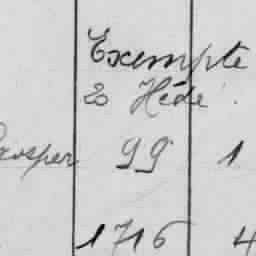 Exempte
Hédé
rosper 99 1
1716 4